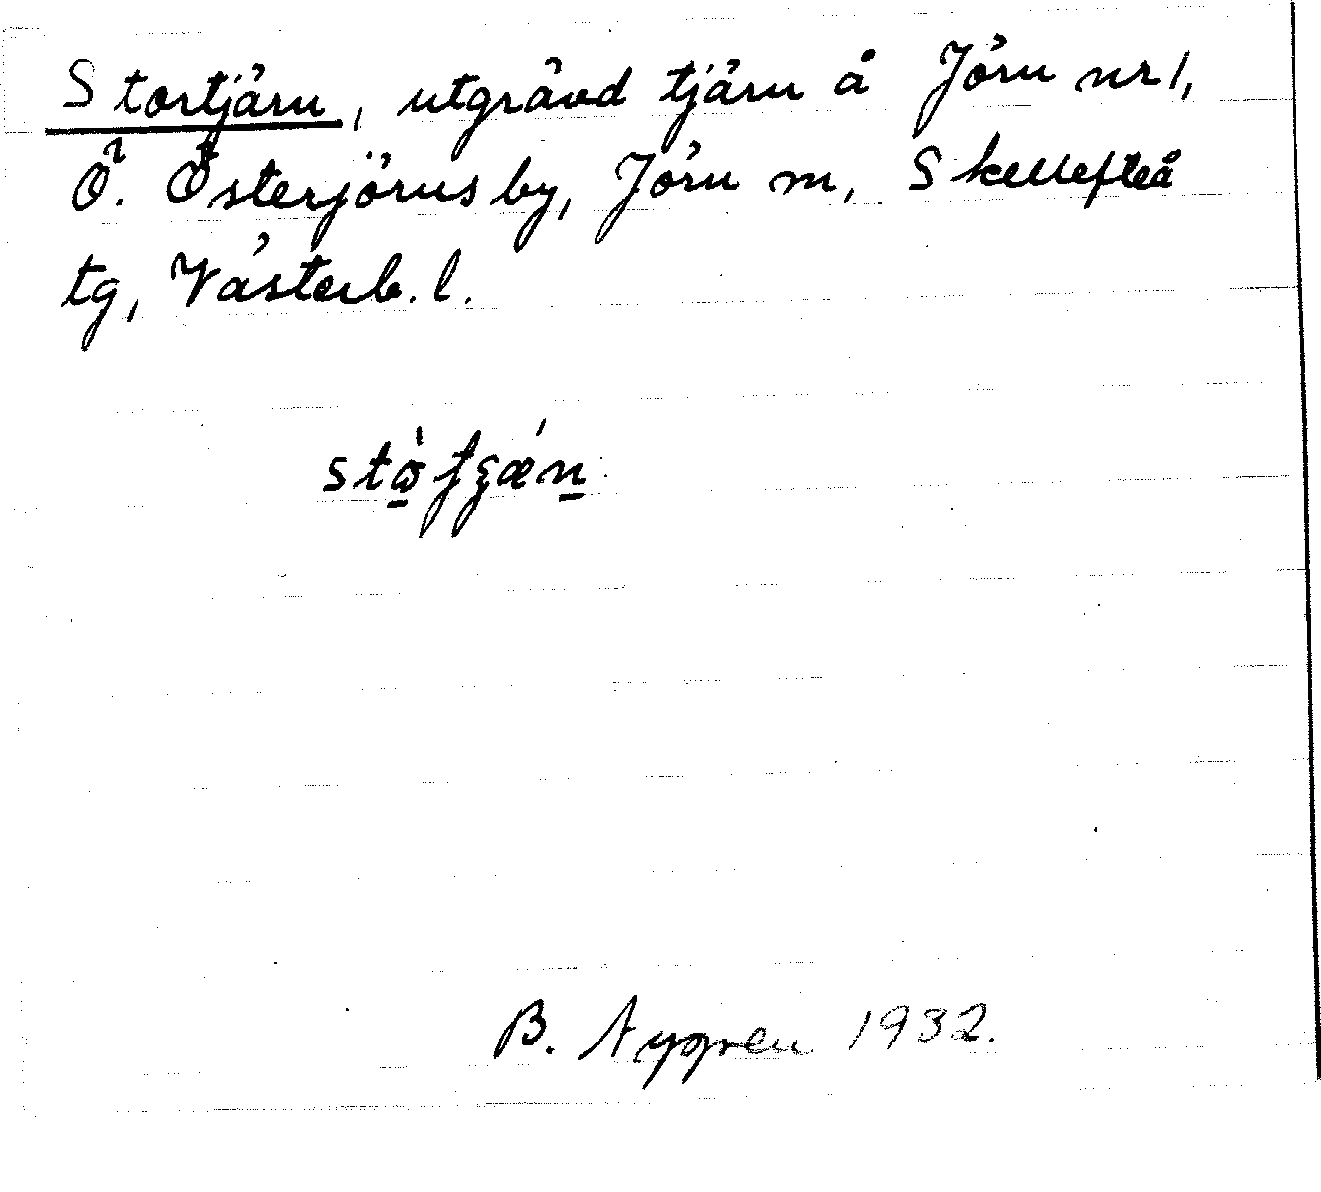 Stortjärn, utgrävd tjärn å Jörn nr 1,
Ö. Österjörns by, Jörn sn, Skellefteå
tg, Västerb. l.
B. Nygren 1932.